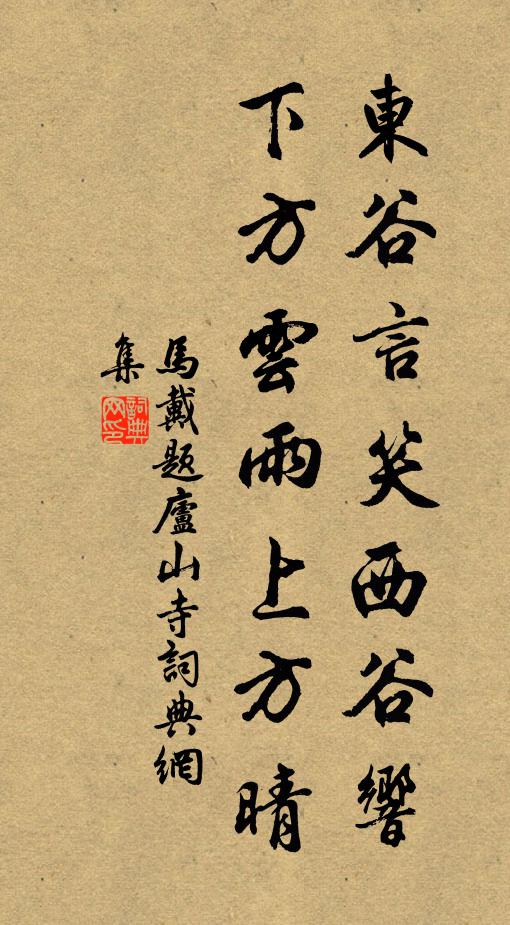 東谷言笑西谷響
下方雲雨上方晴
馬戴題廬山寺詞典網
集
詞典网印